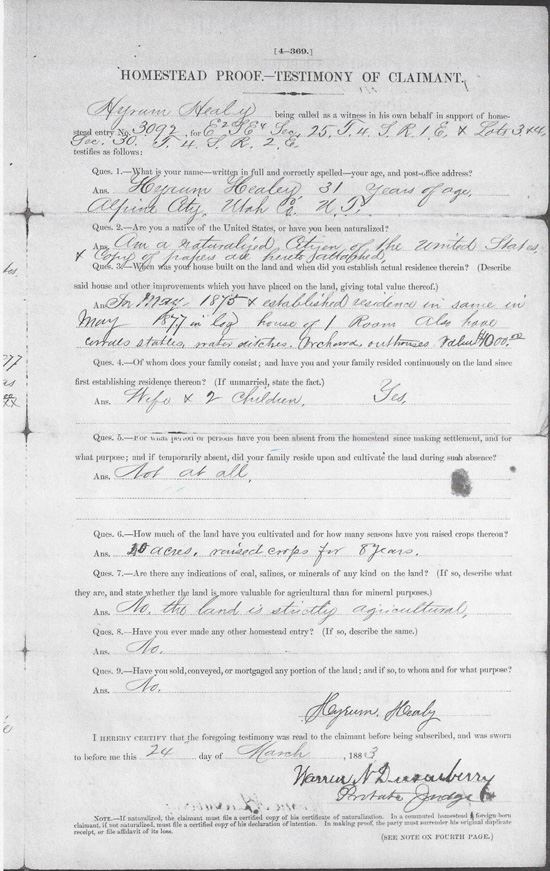 [4-369.]
HOMESTEAD PROOF.—TESTIMONY OF CLAIMANT.
Hyrum Healy being called as a witness in his own behalf in support of home-
stead entry No. 3092, for E2 SE4 Sec. 25. T. 4. S. R. 1 E. & Lots 3 & 4
Sec. 30. T. 4. S. R. 2. E.
testifies as follows:
Ques. 1.—What is your name—written in full and correctly spelled—your age, and post-office address?
Ans. Hyrum Healey 31 Years of age,
Alpine City, Utah Co. U. T.
Ques. 2.—Are you a native of the United States, or have you been naturalized?
Ans. Am a naturalized Citizen of the United States
& Copy of papers are hereto attached,
Ques. 3.—When was your house built on the land and when did you establish actual residence therein? (Describe
said house and other improvements which you have placed on the land, giving total value thereof.)
Ans. In May 1875 & established residence in same in
May 1877 in log house of 1 Room Also have
corrals stables, water ditches. Orchard, outhouses Value $
Ques. 4.—Of whom does your family consist; and have you and your family resided continuously on the land since
first establishing residence thereon? (If unmarried, state the fact.)
Ans. Wife & 2 Children. Yes,
Ques. 5.—For what period or periods have you been absent from the homestead since making settlement, and for
what purpose; and if temporarily absent, did your family reside upon and cultivate the land during such absence?
Ans. Not at all,
Ques. 6.—How much of the land have you cultivated and for how many seasons have you raised crops thereon?
Ans. acres, raised crops for 8 years.
Ques. 7.—Are there any indications of coal, salines, or minerals of any kind on the land? (If so, describe what
they are, and state whether the land is more valuable for agricultural than for mineral purposes.)
Ans. No. the land is strictly agricultural,
Ques. 8.—Have you ever made any other homestead entry? (If so, describe the same.)
Ans. No.
Ques. 9.—Have you sold, conveyed, or mortgaged any portion of the land; and if so, to whom and for what purpose?
Ans. No.
Hyrum, Healy
I HEREBY CERTIFY that the foregoing testimony was read to the claimant before being subscribed, and was sworn
to before me this 24 day of March, 1883
Warren N Dusenberry
Probate Judge
NOTE.—If naturalized, the claimant must file a certified copy of his certificate of naturalization. In a commuted homestead if foreign born
claimant, if not naturalized, must file a certified copy of his declaration of intention. In making proof, the party must surrender his original duplicate
receipt, or file affidavit of its loss.
(SEE NOTE ON FOURTH PAGE.)